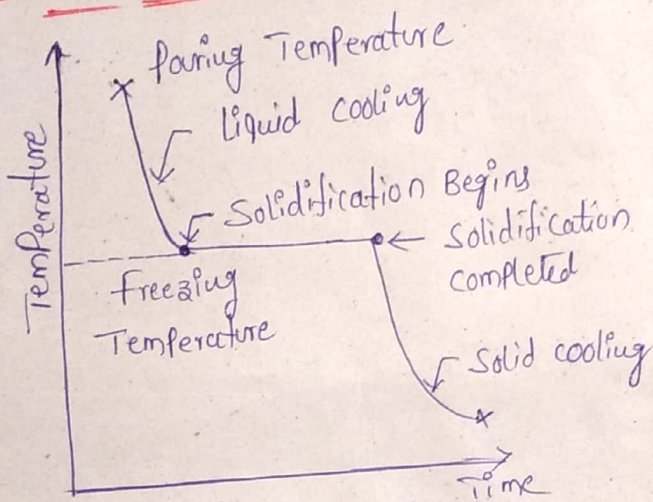 Paring Temperature
Liquid cooling
Solidification Begins
Solidification
completed
Freezing
Temperature
Solid cooling
Temperature
Time